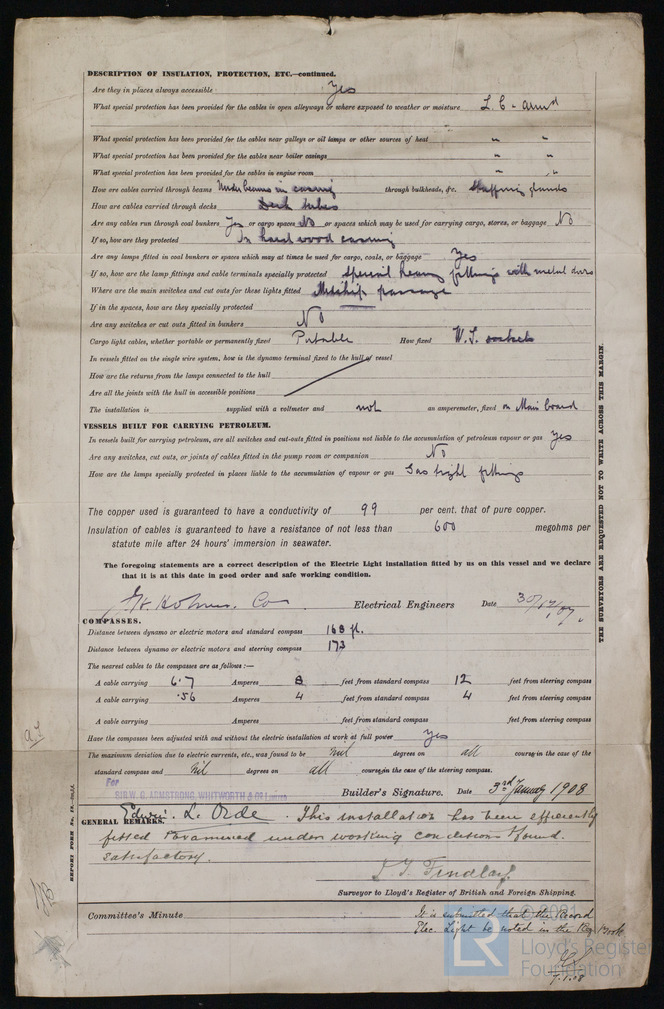 DESCRIPTION OF INSULATION, PROTECTION, ETC.—continued.
Are they in places always accessible Yes
What special protection has been provided for the cables in open alleyways or where exposed to weather or moisture L.C. - armd
What special protection has been provided for the cables near galleys or oil lamps or other sources of heat " "
What special protection has been provided for the cables near boiler casings " "
What special protection has been provided for the cables in engine room " "
How are cables carried through beams Under beams in casing through bulkheads, &c. Stuffing glands
How are cables carried through decks Deck tubes
Are any cables run through coal bunkers Yes or cargo spaces No or spaces which may be used for carrying cargo, stores, or baggage No
If so, how are they protected In hard wood casing
Are any lamps fitted in coal bunkers or spaces which may at times be used for cargo, coals, or baggage Yes
If so, how are the lamp fittings and cable terminals specially protected Special heavy fittings with metal doors
Where are the main switches and cut outs for these lights fitted Midship passage
If in the spaces, how are they specially protected
Are any switches or cut outs fitted in bunkers No
Cargo light cables, whether portable or permanently fixed Portable How fixed W.T. sockets
In vessels fitted on the single wire system, how is the dynamo terminal fixed to the hull of vessel
How are the returns from the lamps connected to the hull
Are all the joints with the hull in accessible positions
The installation is supplied with a voltmeter and not an amperemeter, fixed on Main board
VESSELS BUILT FOR CARRYING PETROLEUM.
In vessels built for carrying petroleum, are all switches and cut-outs fitted in positions not liable to the accumulation of petroleum vapour or gas yes
Are any switches, cut outs, or joints of cables fitted in the pump room or companion No
How are the lamps specially protected in places liable to the accumulation of vapour or gas Gas tight fittings
The copper used is guaranteed to have a conductivity of 99 per cent. that of pure copper.
Insulation of cables is guaranteed to have a resistance of not less than 600 megohms per
statute mile after 24 hours' immersion in seawater.
The foregoing statements are a correct description of the Electric Light installation fitted by us on this vessel and we declare
that it is at this date in good order and safe working condition.
J.H. Holmes. Co Electrical Engineers Date 30/12/07
COMPASSES.
Distance between dynamo or electric motors and standard compass 168 ft.
Distance between dynamo or electric motors and steering compass 173
The nearest cables to the compasses are as follows:—
A cable carrying 6.7 Amperes 8 feet from standard compass 12 feet from steering compass
A cable carrying .56 Amperes 4 feet from standard compass 4 feet from steering compass
A cable carrying Amperes feet from standard compass feet from steering compass
Have the compasses been adjusted with and without the electric installation at work at full power yes
The maximum deviation due to electric currents, etc., was found to be nil degrees on all course in the case of the
standard compass and Nil degrees on all course in the case of the steering compass.
For
SIR W. G. ARMSTRONG, WHITWORTH & Co Limited Builder's Signature. Date 3rd January 1908
Edwin. L. Orde
GENERAL REMARKS. This installation has been efficiently
fitted & examined under working conditions & found
satisfactory.
J. T. Findlay
Surveyor to Lloyd's Register of British and Foreign Shipping.
Committee's Minute
It is submitted that the Record
Elec. Light be noted in the Reg. Book
7.1.08
THE SURVEYORS ARE REQUESTED NOT TO WRITE ACROSS THIS MARGIN.
© 2021
LR
Lloyd's Register
Foundation